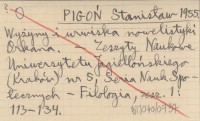 PIGOŃ Stanisław 1955
Wyżyny i urwiska nowelistyki
Orkana. – Zeszyty Naukowe
Uniwersytetu Jagiellońskiego
(Kraków) nr 5, Seria Nauk Spo-
łecznych – Filologia, zesz. 1:
113–134.